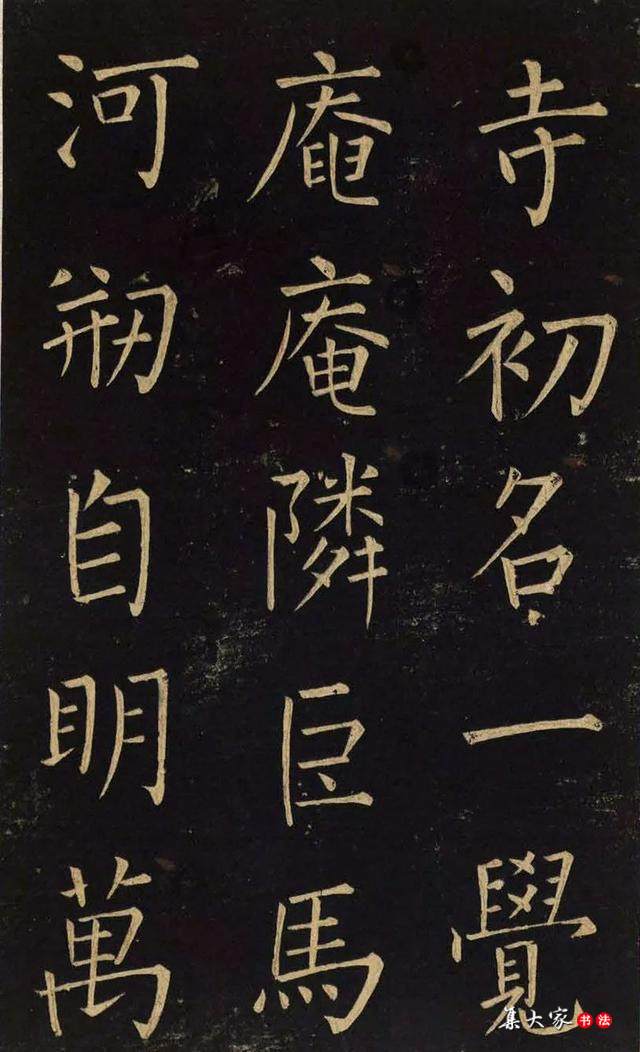 寺初名一覺
庵庵隣巨馬
河剏自明萬
集大家书法